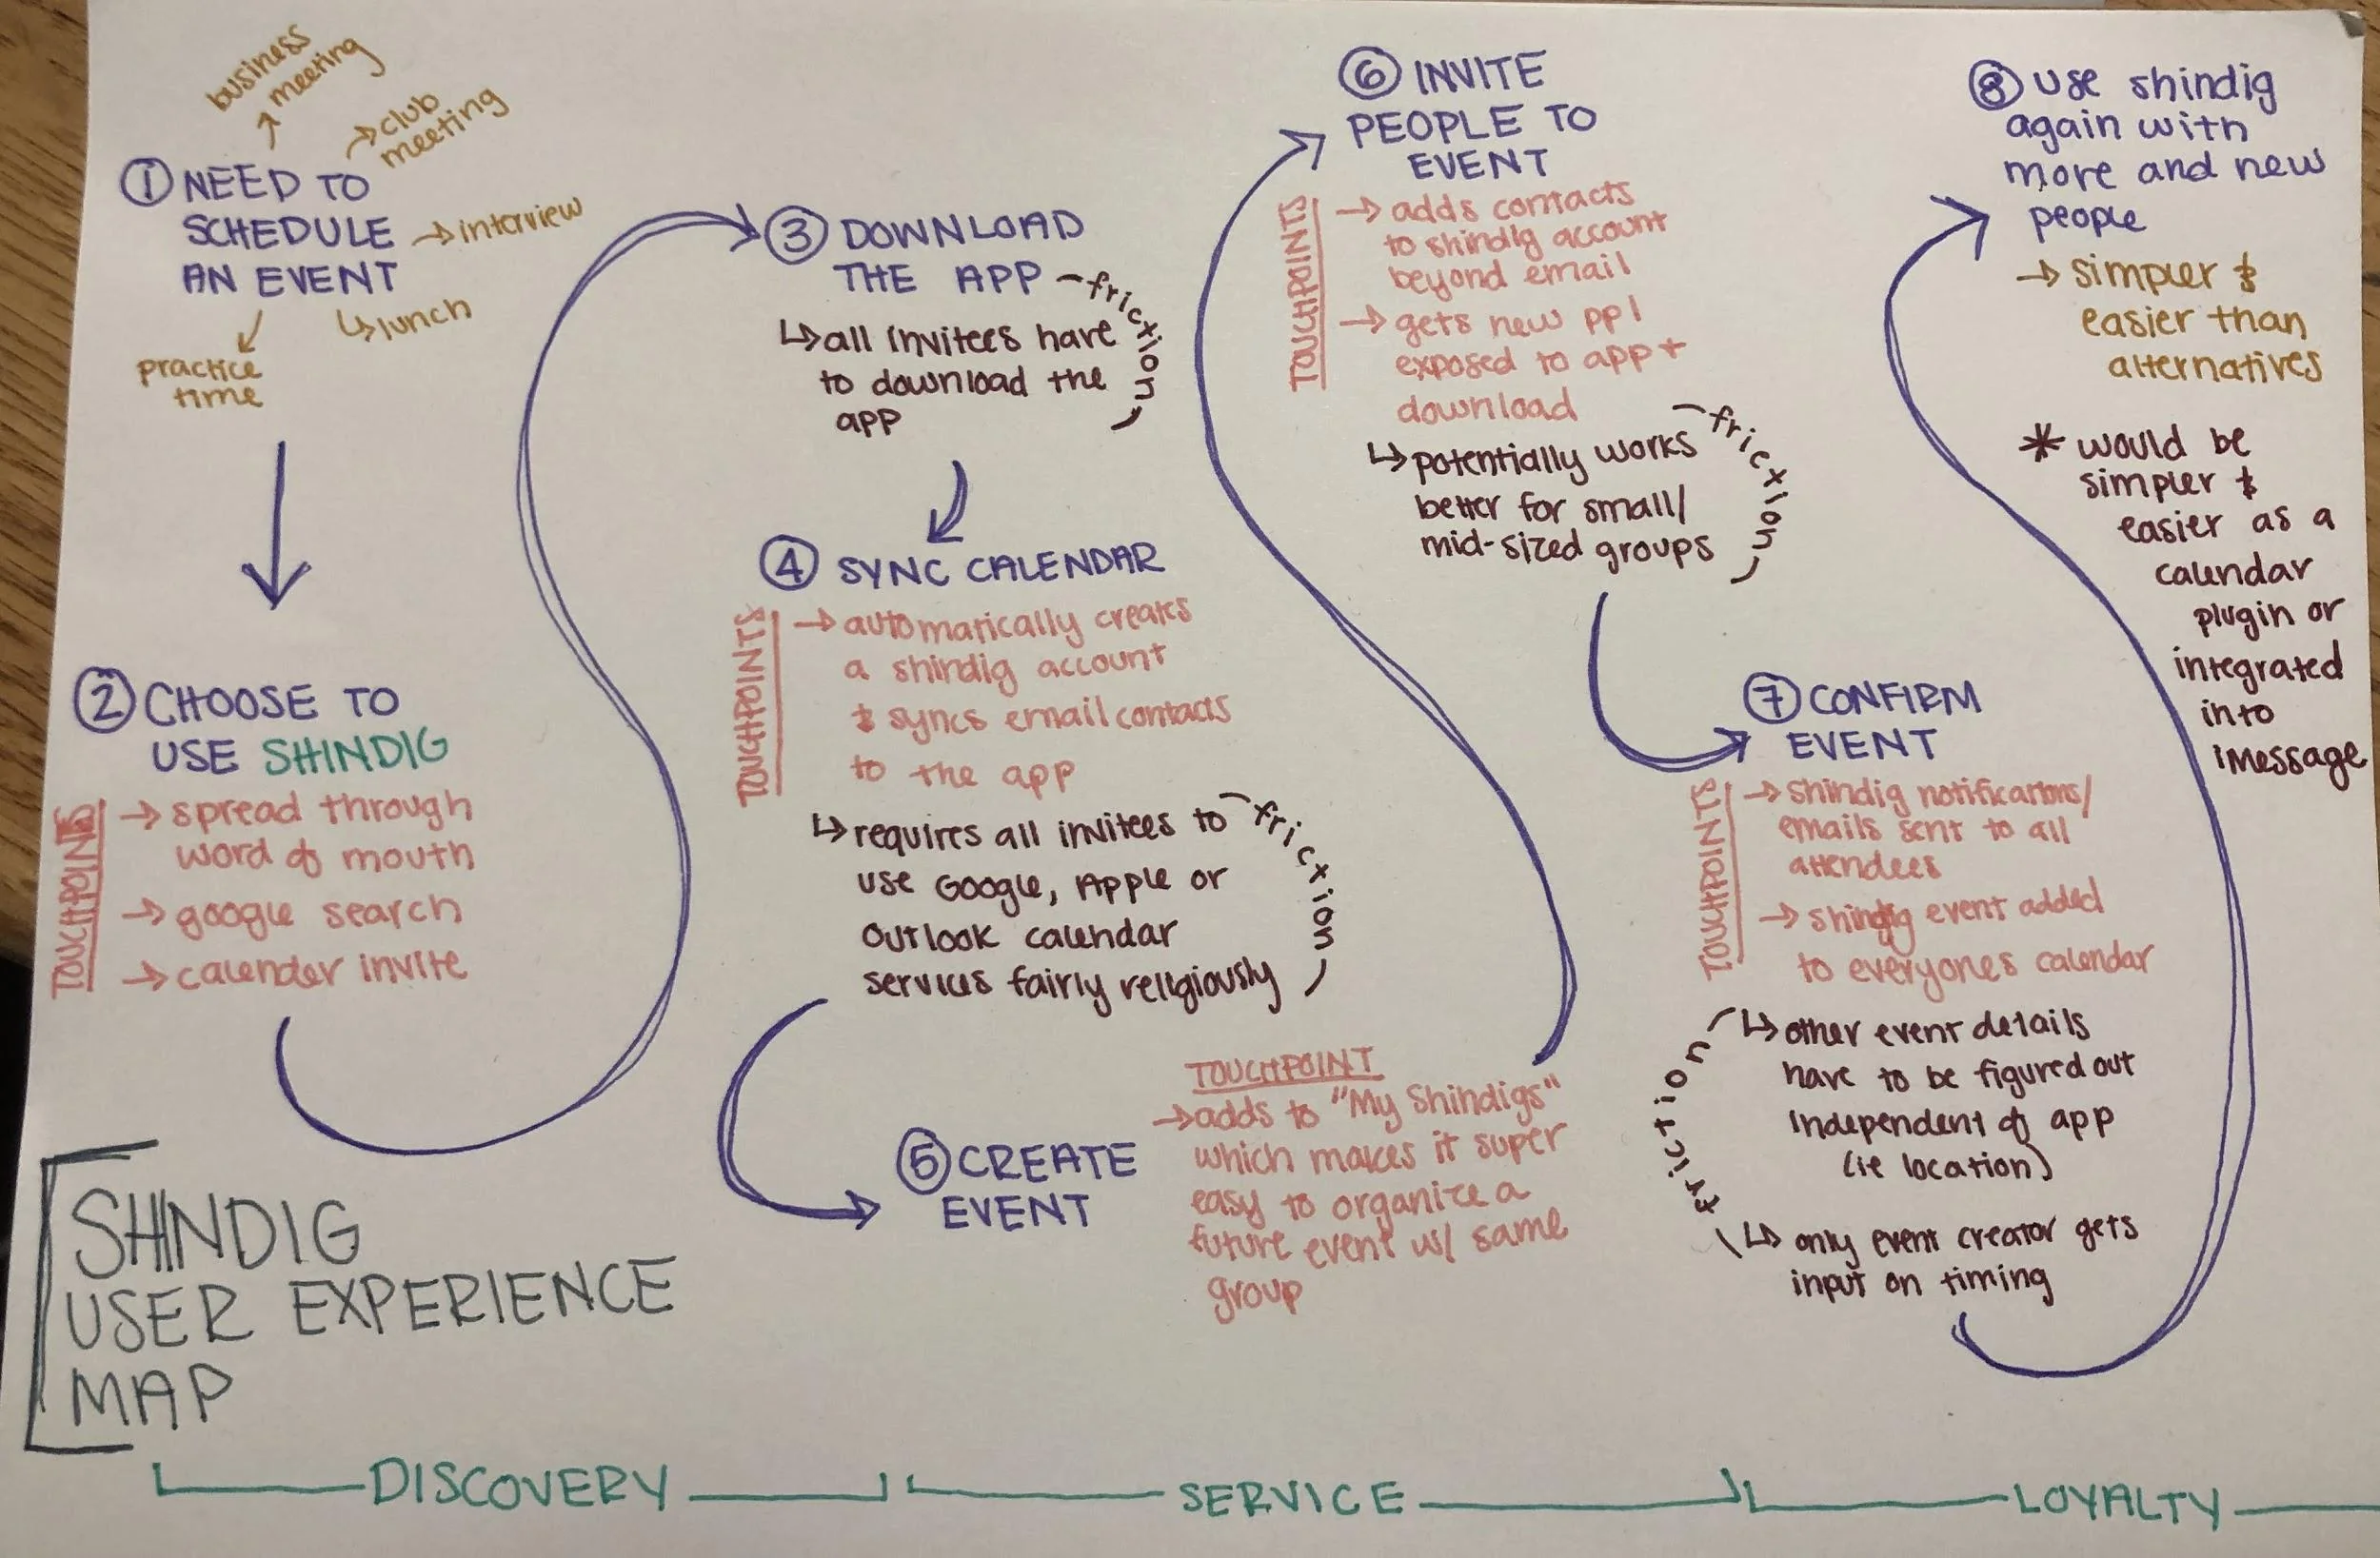 ① NEED TO
SCHEDULE
AN EVENT
business
meeting
club
meeting
interview
lunch
practice
time
② CHOOSE TO
USE SHINDIG
TOUCHPOINTS
→ spread through
word of mouth
→ google search
→ calender invite
③ DOWNLOAD
THE APP
friction
↳ all invitees have
to download the
app
④ SYNC CALENDAR
TOUCHPOINTS
→ automatically creates
a shindig account
& syncs email contacts
to the app
friction
↳ requires all invitees to
use Google, Apple or
Outlook calendar
services fairly religiously
⑤ CREATE
EVENT
TOUCHPOINT
→ adds to "My Shindigs"
which makes it super
easy to organize a
future event w/ same
group
⑥ INVITE
PEOPLE TO
EVENT
TOUCHPOINTS
→ adds contacts
to shindig account
beyond email
→ gets new ppl
exposed to app +
download
friction
↳ potentially works
better for small/
mid-sized groups
⑦ CONFIRM
EVENT
TOUCHPOINTS
→ shindig notifications/
emails sent to all
attendees
→ shindig event added
to everyones calendar
friction
↳ other event details
have to be figured out
independent of app
(ie location)
↳ only event creator gets
input on timing
⑧ use shindig
again with
more and new
people
→ simpler &
easier than
alternatives
* would be
simpler &
easier as a
calendar
plugin or
integrated
into
iMessage
SHINDIG
USER EXPERIENCE
MAP
DISCOVERY
SERVICE
LOYALTY